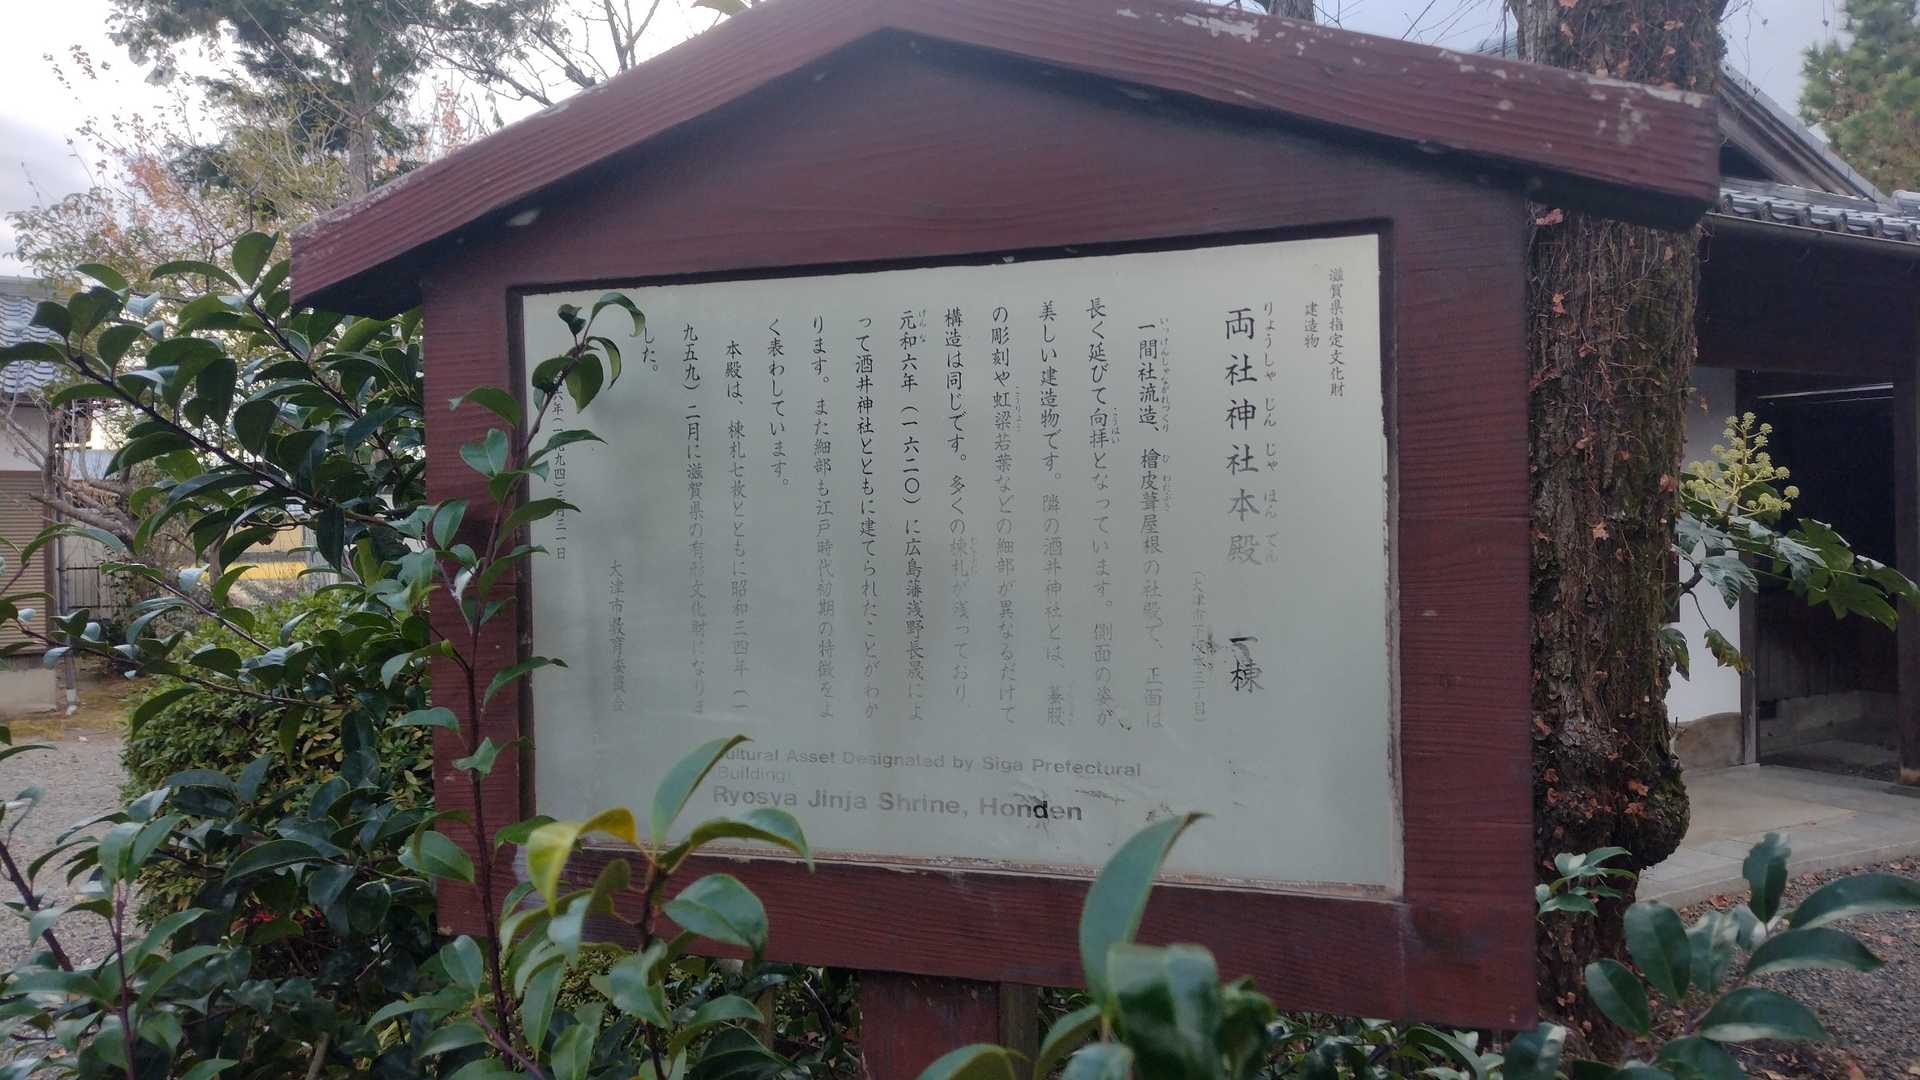 滋賀県指定文化財
建造物
りょうしゃ じん じゃ ほん でん
両社神社本殿 一棟
(大津市下阪本三丁目)
いっけんしゃながれづくり ひ わだぶき
一間社流造、檜皮葺屋根の社殿で、正面は
こうはい
長く延びて向拝となっています。側面の姿が
美しい建造物です。隣の酒井神社とは、蟇股
こうりょう
の彫刻や虹梁若葉などの細部が異なるだけで
構造は同じです。多くの棟札が残っており、
げんな
元和六年(一六二〇)に広島藩浅野長晟によ
って酒井神社とともに建てられたことがわか
ります。また細部も江戸時代初期の特徴をよ
く表わしています。
本殿は、棟札七枚とともに昭和三四年(一
九五九)二月に滋賀県の有形文化財になりま
した。
大津市教育委員会
六年(一九九四)三月三一日
ultural Asset Designated by Siga Prefectural
Building)
Ryosya Jinja Shrine, Honden